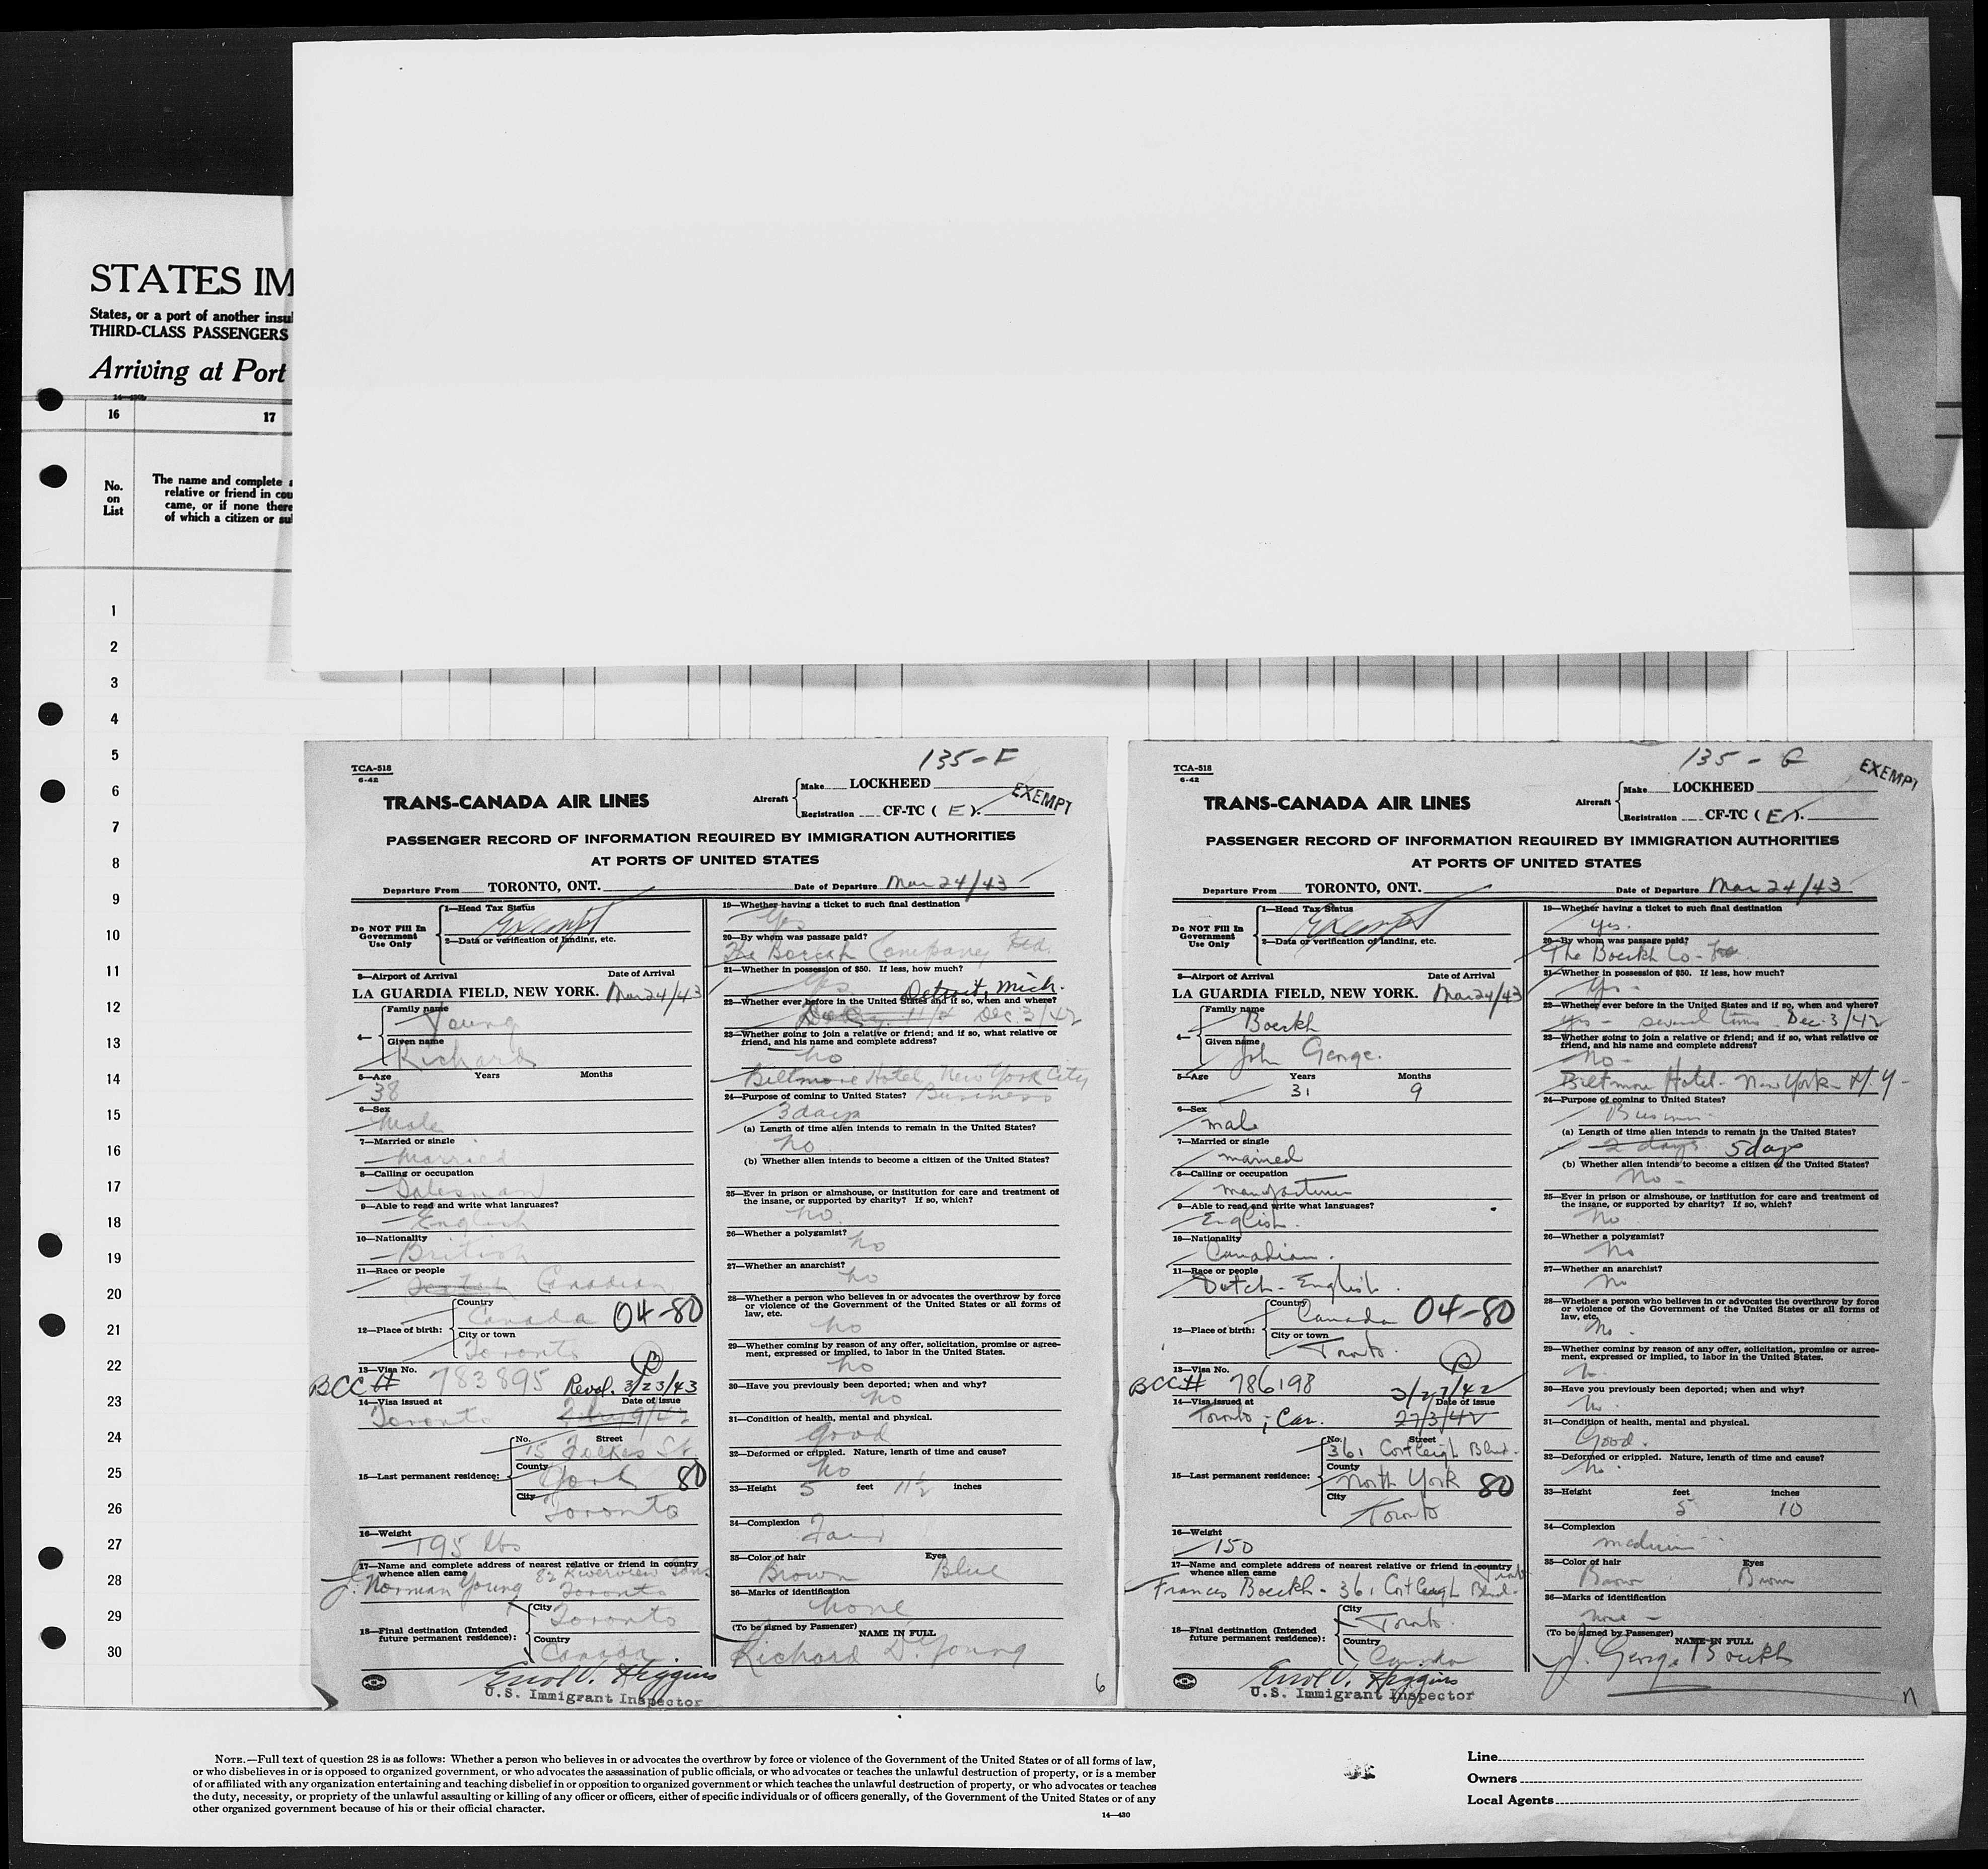 STATES IM
States, or a port of another insul
THIRD-CLASS PASSENGERS
Arriving at Port
16 17
No. on List
The name and complete a
relative or friend in cou
came, or if none there
of which a citizen or su
1
2
3
4
5
6
7
8
9
10
11
12
13
14
15
16
17
18
19
20
21
22
23
24
25
26
27
28
29
30
135-F
TCA-518
6-42
TRANS-CANADA AIR LINES
Aircraft
Make LOCKHEED
Registration CF-TC ( E ).
EXEMPT
PASSENGER RECORD OF INFORMATION REQUIRED BY IMMIGRATION AUTHORITIES
AT PORTS OF UNITED STATES
Departure From TORONTO, ONT. Date of Departure Mar 24/43
Do NOT Fill In Government Use Only
1—Head Tax Status
Exempt
2—Data or verification of landing, etc.
3—Airport of Arrival Date of Arrival
LA GUARDIA FIELD, NEW YORK. Mar 24/43
4— Family name
Young
Given name
Richard
5—Age Years Months
38
6—Sex
Male
7—Married or single
Married
8—Calling or occupation
Salesman
9—Able to read and write what languages?
English
10—Nationality
British
11—Race or people
Canadian
12—Place of birth:
Country
Canada 04-80
City or town
Toronto
13—Visa No.
BCC # 783895 Revd. 3/23/43
14—Visa issued at Date of issue
Toronto
15—Last permanent residence:
No. Street
15 St.
County
York 80
City
Toronto
16—Weight
195 lbs
17—Name and complete address of nearest relative or friend in country
whence alien came
J. Norman Young 82 Riverview Gdns
Toronto
18—Final destination (Intended
future permanent residence):
City
Toronto
Country
Canada
Errol V. Higgins
U.S. Immigrant Inspector
19—Whether having a ticket to such final destination
Yes
20—By whom was passage paid?
The Boeckh Company Ltd.
21—Whether in possession of $50. If less, how much?
Yes
Detroit, Mich.
22—Whether ever before in the United States and if so, when and where?
Dec 3/42
23—Whether going to join a relative or friend; and if so, what relative or
friend, and his name and complete address?
No
Biltmore Hotel New York City
24—Purpose of coming to United States? Business
3 days
(a) Length of time alien intends to remain in the United States?
No
(b) Whether alien intends to become a citizen of the United States?
25—Ever in prison or almshouse, or institution for care and treatment of
the insane, or supported by charity? If so, which?
No
26—Whether a polygamist?
No
27—Whether an anarchist?
No
28—Whether a person who believes in or advocates the overthrow by force
or violence of the Government of the United States or all forms of
law, etc.
No
29—Whether coming by reason of any offer, solicitation, promise or agree-
ment, expressed or implied, to labor in the United States.
No
30—Have you previously been deported; when and why?
No
31—Condition of health, mental and physical.
Good
32—Deformed or crippled. Nature, length of time and cause?
No
33—Height 5 feet 11½ inches
34—Complexion
Fair
35—Color of hair Eyes
Brown Blue
36—Marks of identification
None
(To be signed by Passenger) NAME IN FULL
Richard D. Young
6
135-G
TCA-518
6-42
TRANS-CANADA AIR LINES
Aircraft
Make LOCKHEED
Registration CF-TC ( E ).
EXEMPT
PASSENGER RECORD OF INFORMATION REQUIRED BY IMMIGRATION AUTHORITIES
AT PORTS OF UNITED STATES
Departure From TORONTO, ONT. Date of Departure Mar 24/43
Do NOT Fill In Government Use Only
1—Head Tax Status
Exempt
2—Data or verification of landing, etc.
3—Airport of Arrival Date of Arrival
LA GUARDIA FIELD, NEW YORK. Mar 24/43
4— Family name
Boeckh
Given name
John George.
5—Age Years Months
31 9
6—Sex
male
7—Married or single
married
8—Calling or occupation
manufacturer
9—Able to read and write what languages?
English.
10—Nationality
Canadian.
11—Race or people
Dutch - English.
12—Place of birth:
Country
Canada 04-80
City or town
Toronto.
13—Visa No.
BCC # 786198 3/27/42
14—Visa issued at Date of issue
Toronto, Can. 27/3/42
15—Last permanent residence:
No. Street
361 Cortleigh Blvd.
County
North York 80
City
Toronto
16—Weight
150
17—Name and complete address of nearest relative or friend in country
whence alien came
Frances Boeckh - 361 Cortleigh Blvd.
18—Final destination (Intended
future permanent residence):
City
Toronto.
Country
Canada
Errol V. Higgins
U.S. Immigrant Inspector
19—Whether having a ticket to such final destination
Yes.
20—By whom was passage paid?
The Boeckh Co -
21—Whether in possession of $50. If less, how much?
Yes -
22—Whether ever before in the United States and if so, when and where?
Yes - several times Dec. 3/42
23—Whether going to join a relative or friend; and if so, what relative or
friend, and his name and complete address?
No -
Biltmore Hotel - New York - N.Y -
24—Purpose of coming to United States?
Business.
(a) Length of time alien intends to remain in the United States?
2 days. 5 days
(b) Whether alien intends to become a citizen of the United States?
No -
25—Ever in prison or almshouse, or institution for care and treatment of
the insane, or supported by charity? If so, which?
No
26—Whether a polygamist?
No
27—Whether an anarchist?
No
28—Whether a person who believes in or advocates the overthrow by force
or violence of the Government of the United States or all forms of
law, etc.
No.
29—Whether coming by reason of any offer, solicitation, promise or agree-
ment, expressed or implied, to labor in the United States.
No.
30—Have you previously been deported; when and why?
No.
31—Condition of health, mental and physical.
Good.
32—Deformed or crippled. Nature, length of time and cause?
No.
33—Height feet inches
5 10
34—Complexion
medium
35—Color of hair Eyes
Brown Brown
36—Marks of identification
None -
(To be signed by Passenger) NAME IN FULL
J. George Boeckh
NOTE.—Full text of question 28 is as follows: Whether a person who believes in or advocates the overthrow by force or violence of the Government of the United States or of all forms of law,
or who disbelieves in or is opposed to organized government, or who advocates the assassination of public officials, or who advocates or teaches the unlawful destruction of property, or is a member
of or affiliated with any organization entertaining and teaching disbelief in or opposition to organized government or which teaches the unlawful destruction of property, or who advocates or teaches
the duty, necessity, or propriety of the unlawful assaulting or killing of any officer or officers, either of specific individuals or of officers generally, of the Government of the United States or of any
other organized government because of his or their official character.
14—430
Line
Owners
Local Agents